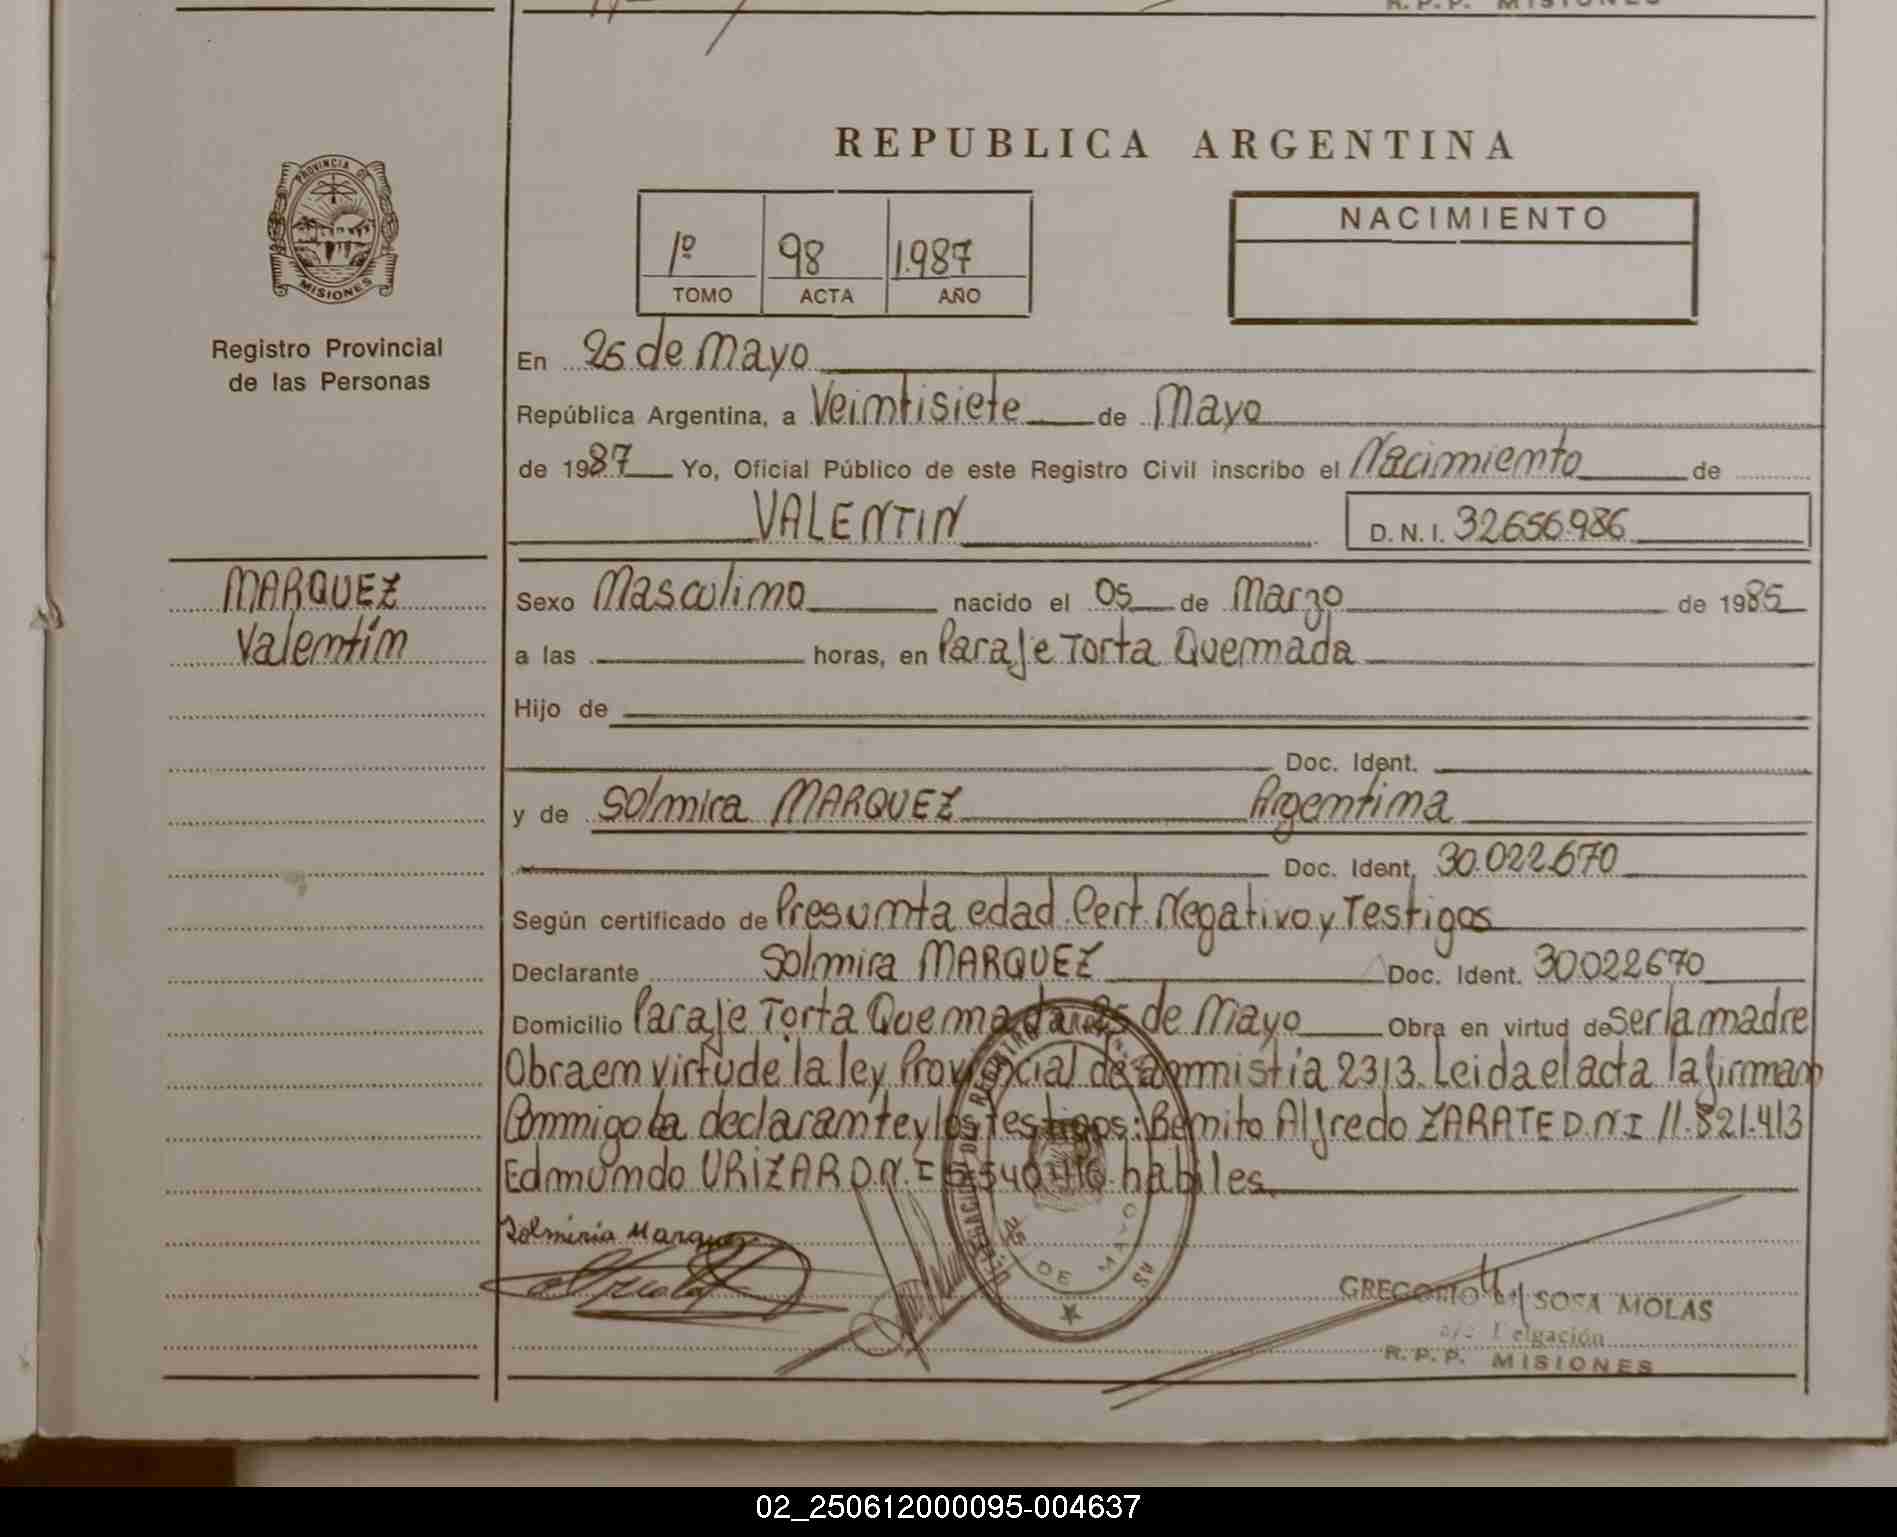 R. P. P. MISIONES
REPUBLICA ARGENTINA
PROVINCIA DE
MISIONES
Registro Provincial
de las Personas
1º 98 1.987
TOMO ACTA AÑO
NACIMIENTO
En 25 de Mayo
República Argentina, a Veintisiete de Mayo
de 1987 Yo, Oficial Público de este Registro Civil inscribo el Nacimiento de
VALENTIN D. N. I. 32.656.986
MARQUEZ
Valentín
Sexo Masculino nacido el 05 de Marzo de 1985
a las horas, en Paraje Torta Quemada
Hijo de
Doc. Ident.
y de Solmira MARQUEZ Argentina
Doc. Ident. 30.022.670
Según certificado de Presunta edad. Cert. Negativo y Testigos
Declarante Solmira MARQUEZ Doc. Ident. 30022670
Domicilio Paraje Torta Quemada 25 de Mayo Obra en virtud de ser la madre
Obra em virtud de la ley Provincial de ammistía 2313. Leida el acta la firman
Conmigo la declarante y los Testigos: Benito Alfredo ZARATE D.N.I 11.821.413
Edmundo URIZAR D.N.I habiles.
Solmiria Marquez
25 DE MAYO
GREGORIO SOSA MOLAS
a/c Delgación
R. P. P. MISIONES
02_250612000095-004637